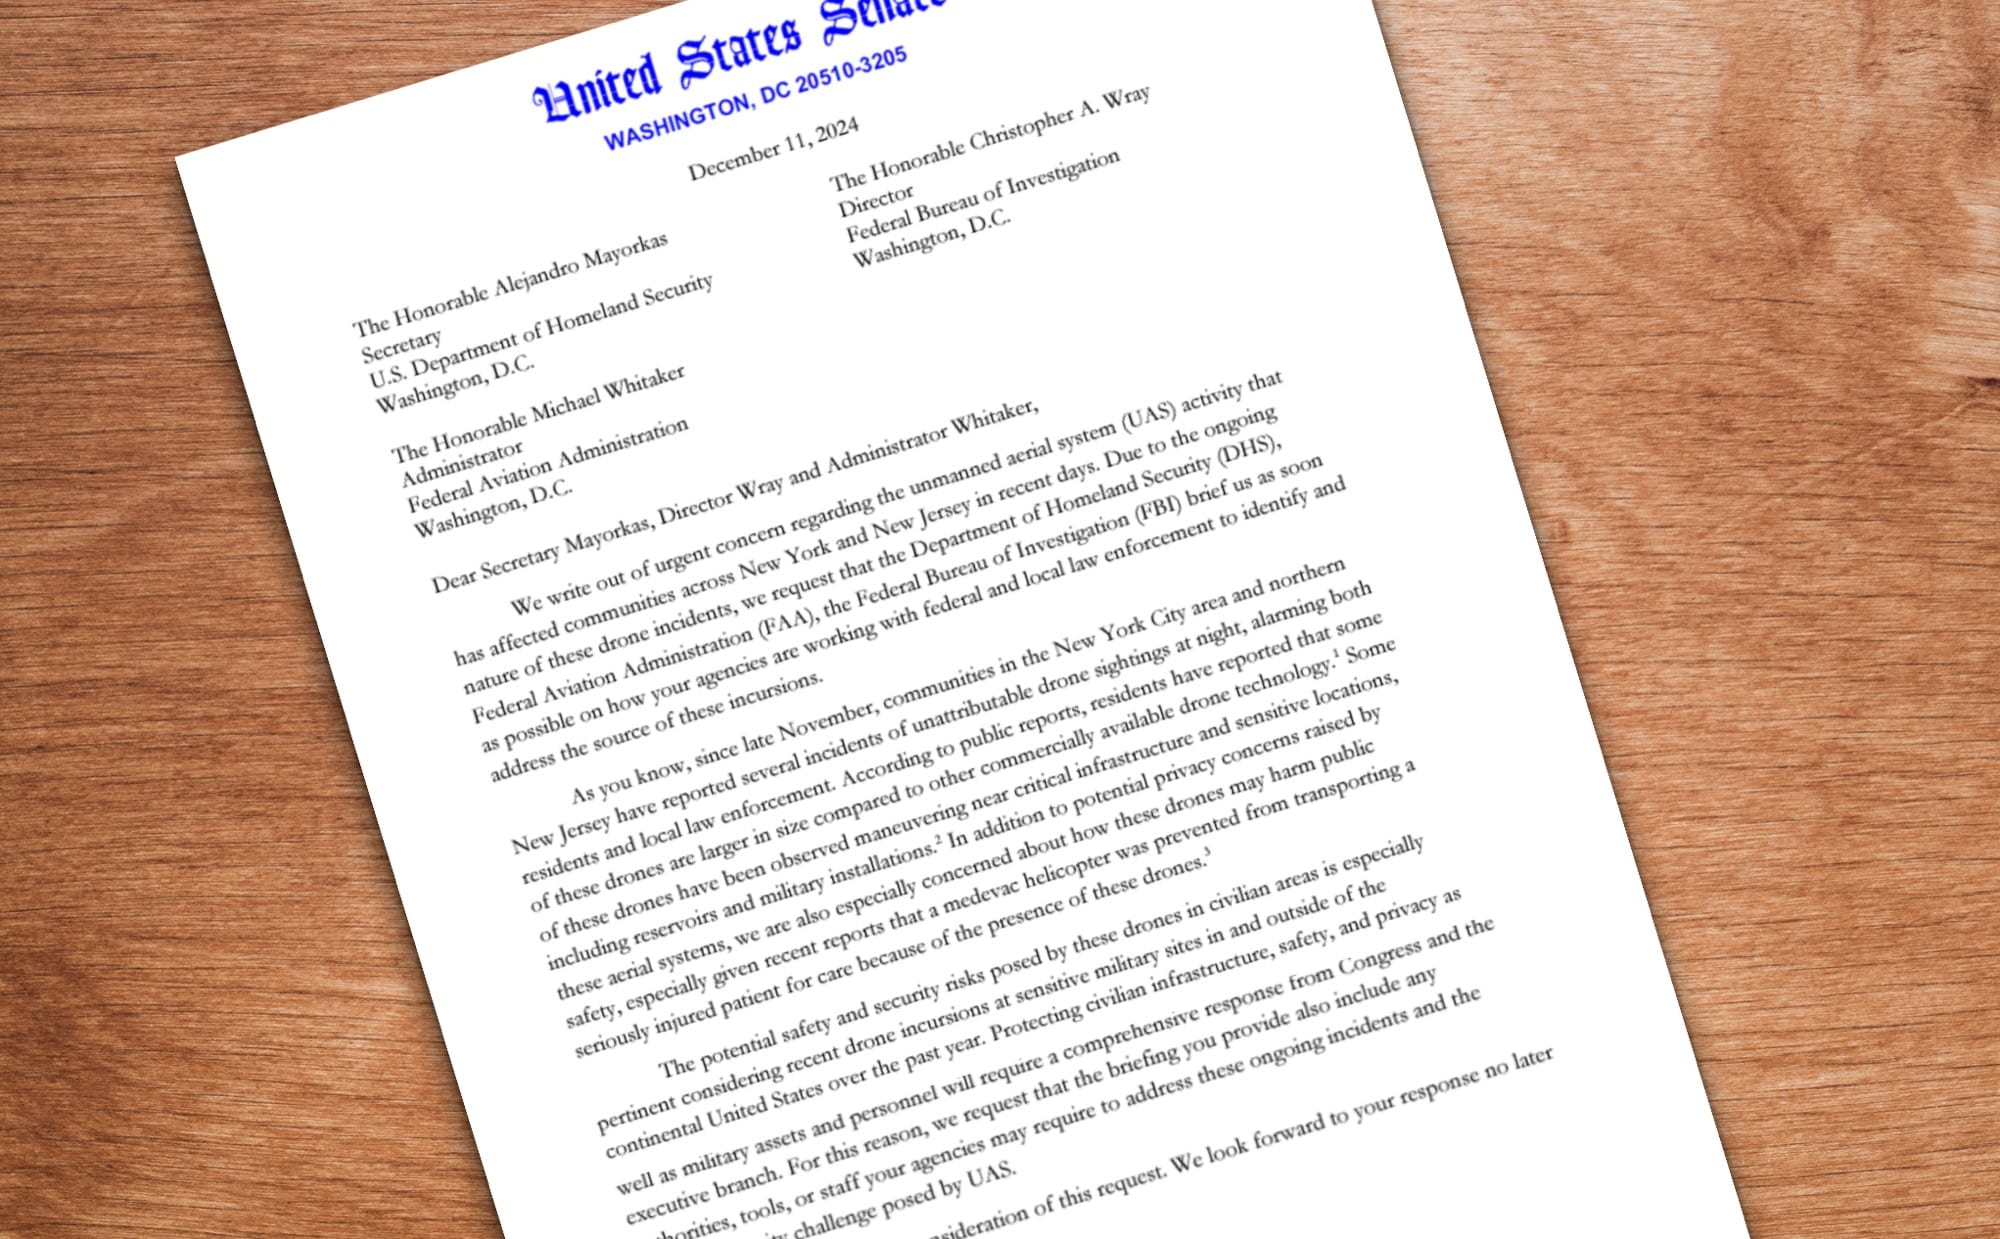 United States Senate
WASHINGTON, DC 20510-3205
December 11, 2024
The Honorable Christopher A. Wray
Director
Federal Bureau of Investigation
Washington, D.C.
The Honorable Alejandro Mayorkas
Secretary
U.S. Department of Homeland Security
Washington, D.C.
The Honorable Michael Whitaker
Administrator
Federal Aviation Administration
Washington, D.C.
Dear Secretary Mayorkas, Director Wray and Administrator Whitaker,
We write out of urgent concern regarding the unmanned aerial system (UAS) activity that
has affected communities across New York and New Jersey in recent days. Due to the ongoing
nature of these drone incidents, we request that the Department of Homeland Security (DHS),
Federal Aviation Administration (FAA), the Federal Bureau of Investigation (FBI) brief us as soon
as possible on how your agencies are working with federal and local law enforcement to identify and
address the source of these incursions.
As you know, since late November, communities in the New York City area and northern
New Jersey have reported several incidents of unattributable drone sightings at night, alarming both
residents and local law enforcement. According to public reports, residents have reported that some
of these drones are larger in size compared to other commercially available drone technology.¹ Some
of these drones have been observed maneuvering near critical infrastructure and sensitive locations,
including reservoirs and military installations.² In addition to potential privacy concerns raised by
these aerial systems, we are also especially concerned about how these drones may harm public
safety, especially given recent reports that a medevac helicopter was prevented from transporting a
seriously injured patient for care because of the presence of these drones.³
The potential safety and security risks posed by these drones in civilian areas is especially
pertinent considering recent drone incursions at sensitive military sites in and outside of the
continental United States over the past year. Protecting civilian infrastructure, safety, and privacy as
well as military assets and personnel will require a comprehensive response from Congress and the
executive branch. For this reason, we request that the briefing you provide also include any
horities, tools, or staff your agencies may require to address these ongoing incidents and the
ty challenge posed by UAS.
nsideration of this request. We look forward to your response no later